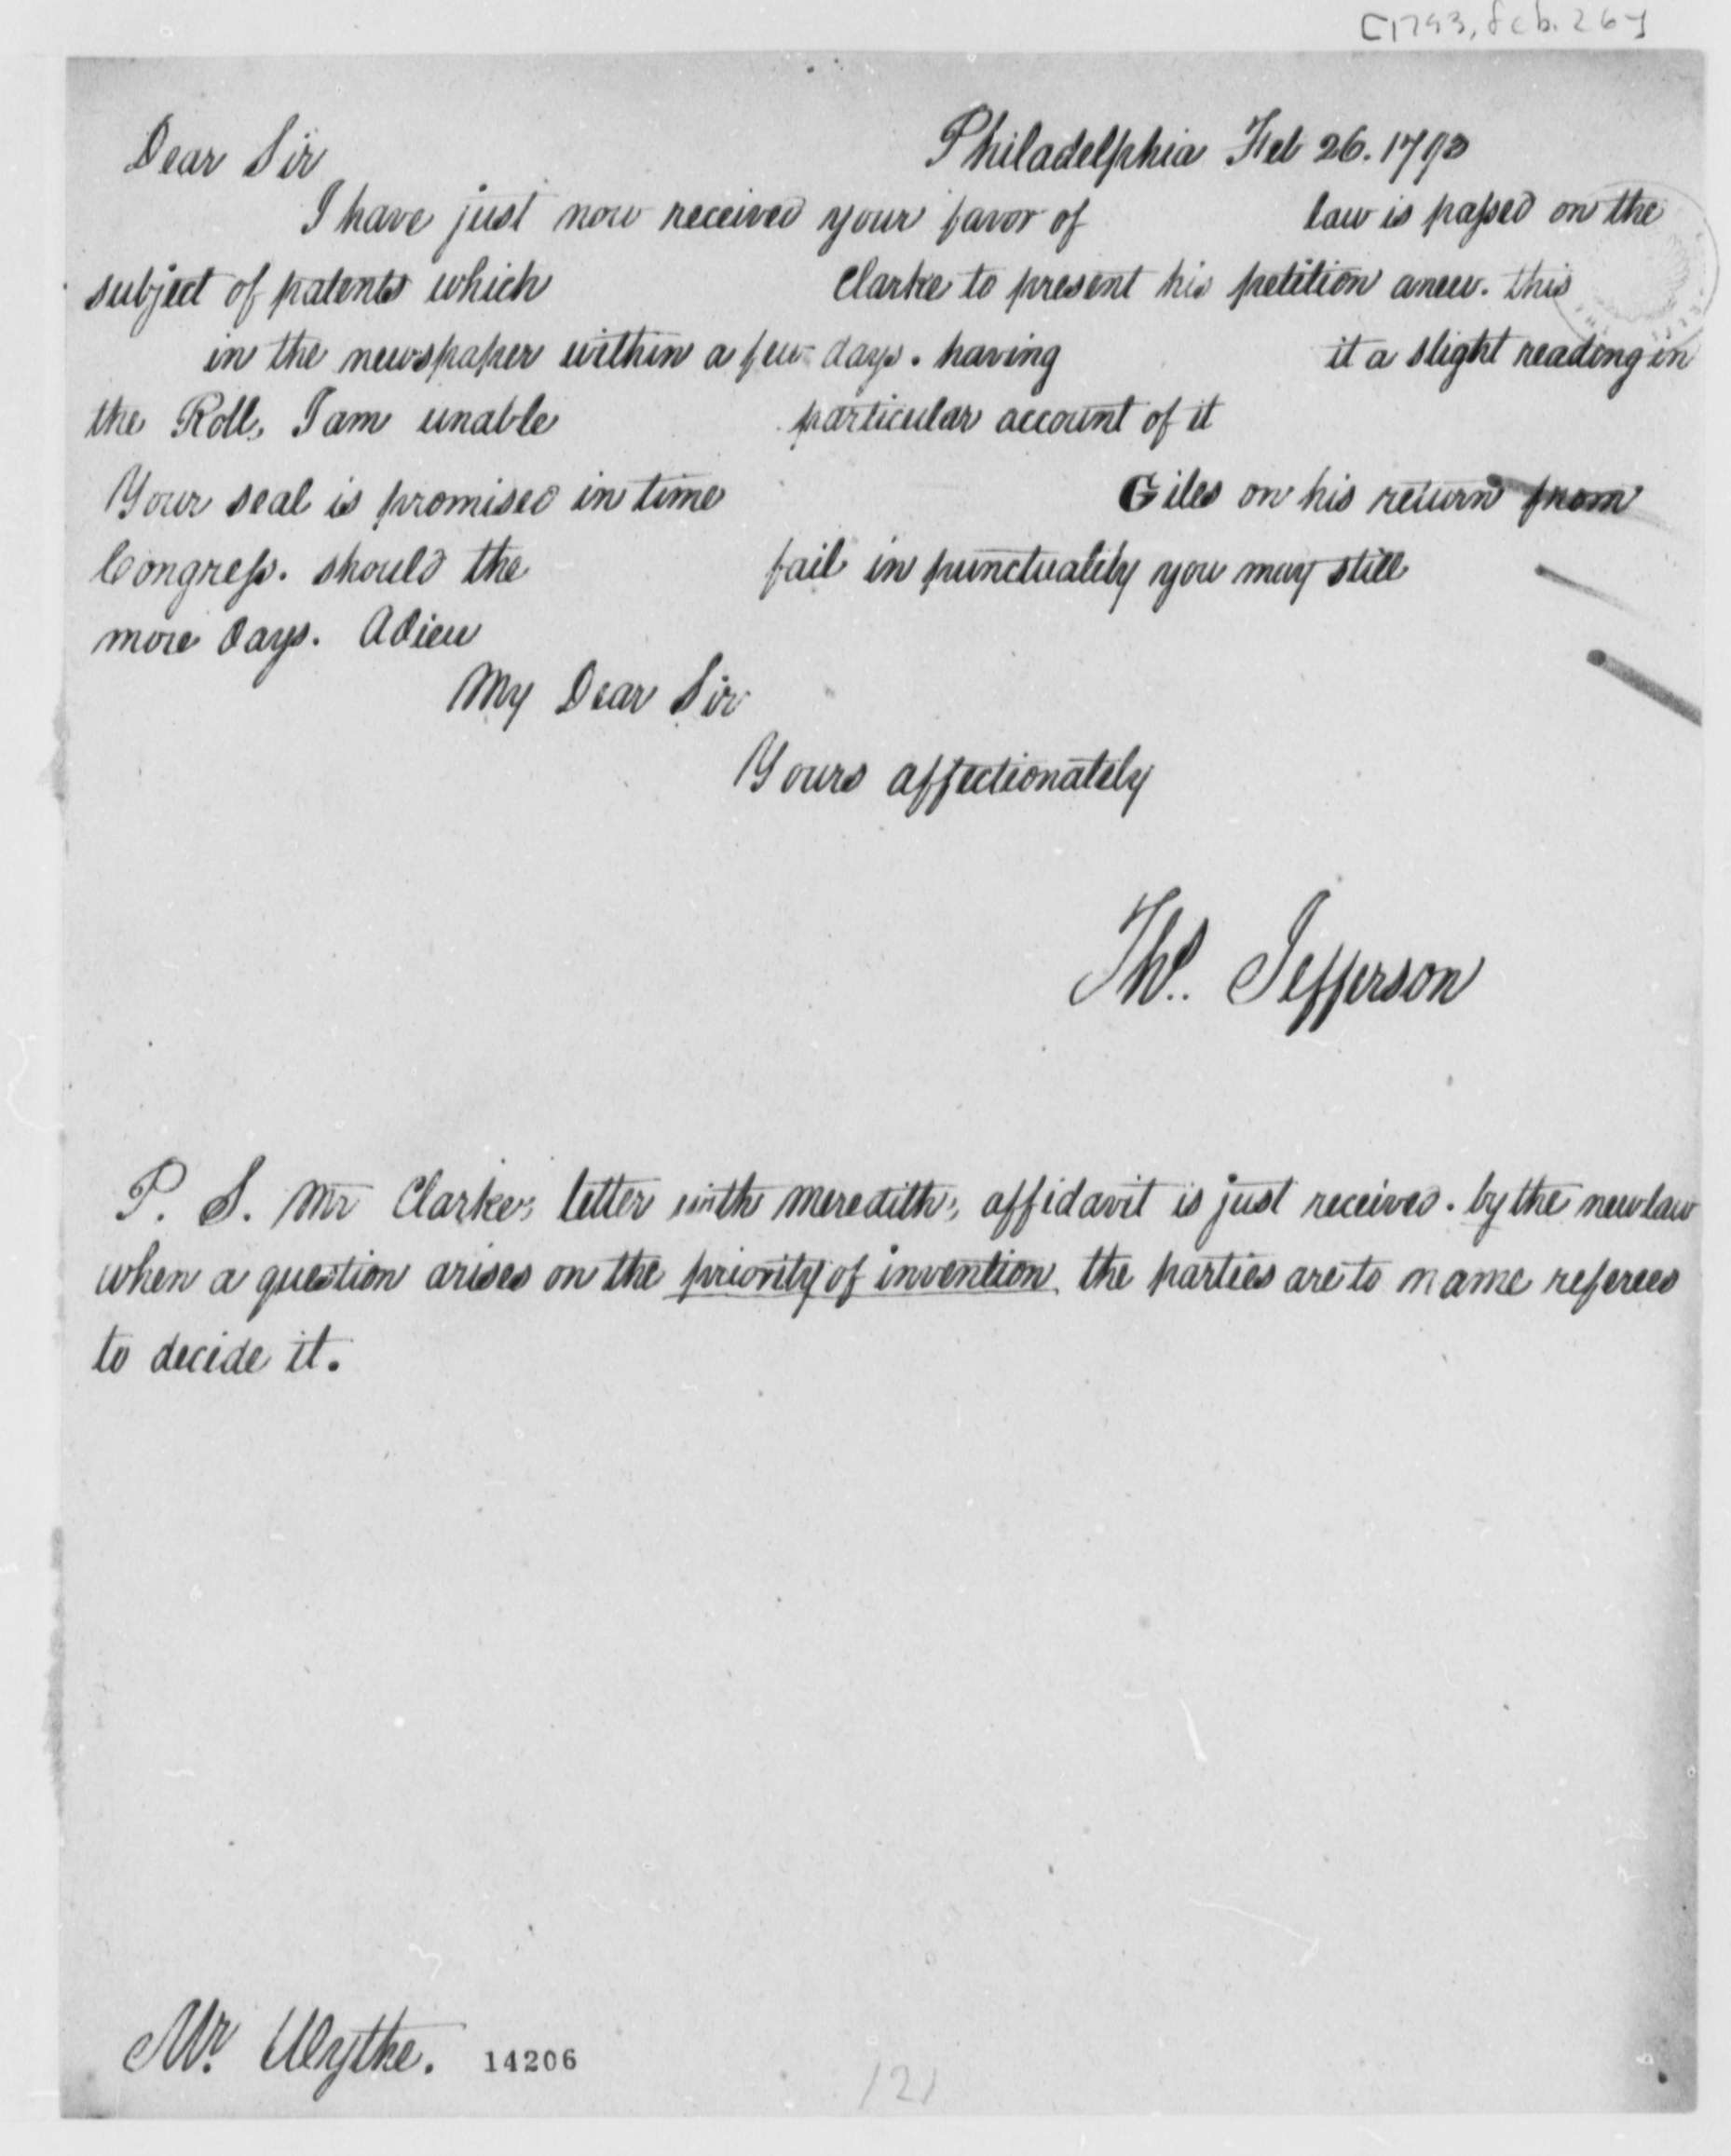 [1793, Feb. 26]
Dear Sir Philadelphia Feb 26. 1793
I have just now received your favor of law is passed on the
subject of patents which Clarke to present his petition anew. this
in the newspaper within a few days. having it a slight reading in
the Roll, I am unable particular account of it
Your seal is promised in time Giles on his return from
Congress. should the fail in punctuality you may still
more days. Adieu
My Dear Sir
Yours affectionately
Th. Jefferson
P. S. Mr Clarke's letter with Meredith's affidavit is just received. by the new law
when a question arises on the priority of invention the parties are to name referees
to decide it.
Mr. Wythe. 14206
121